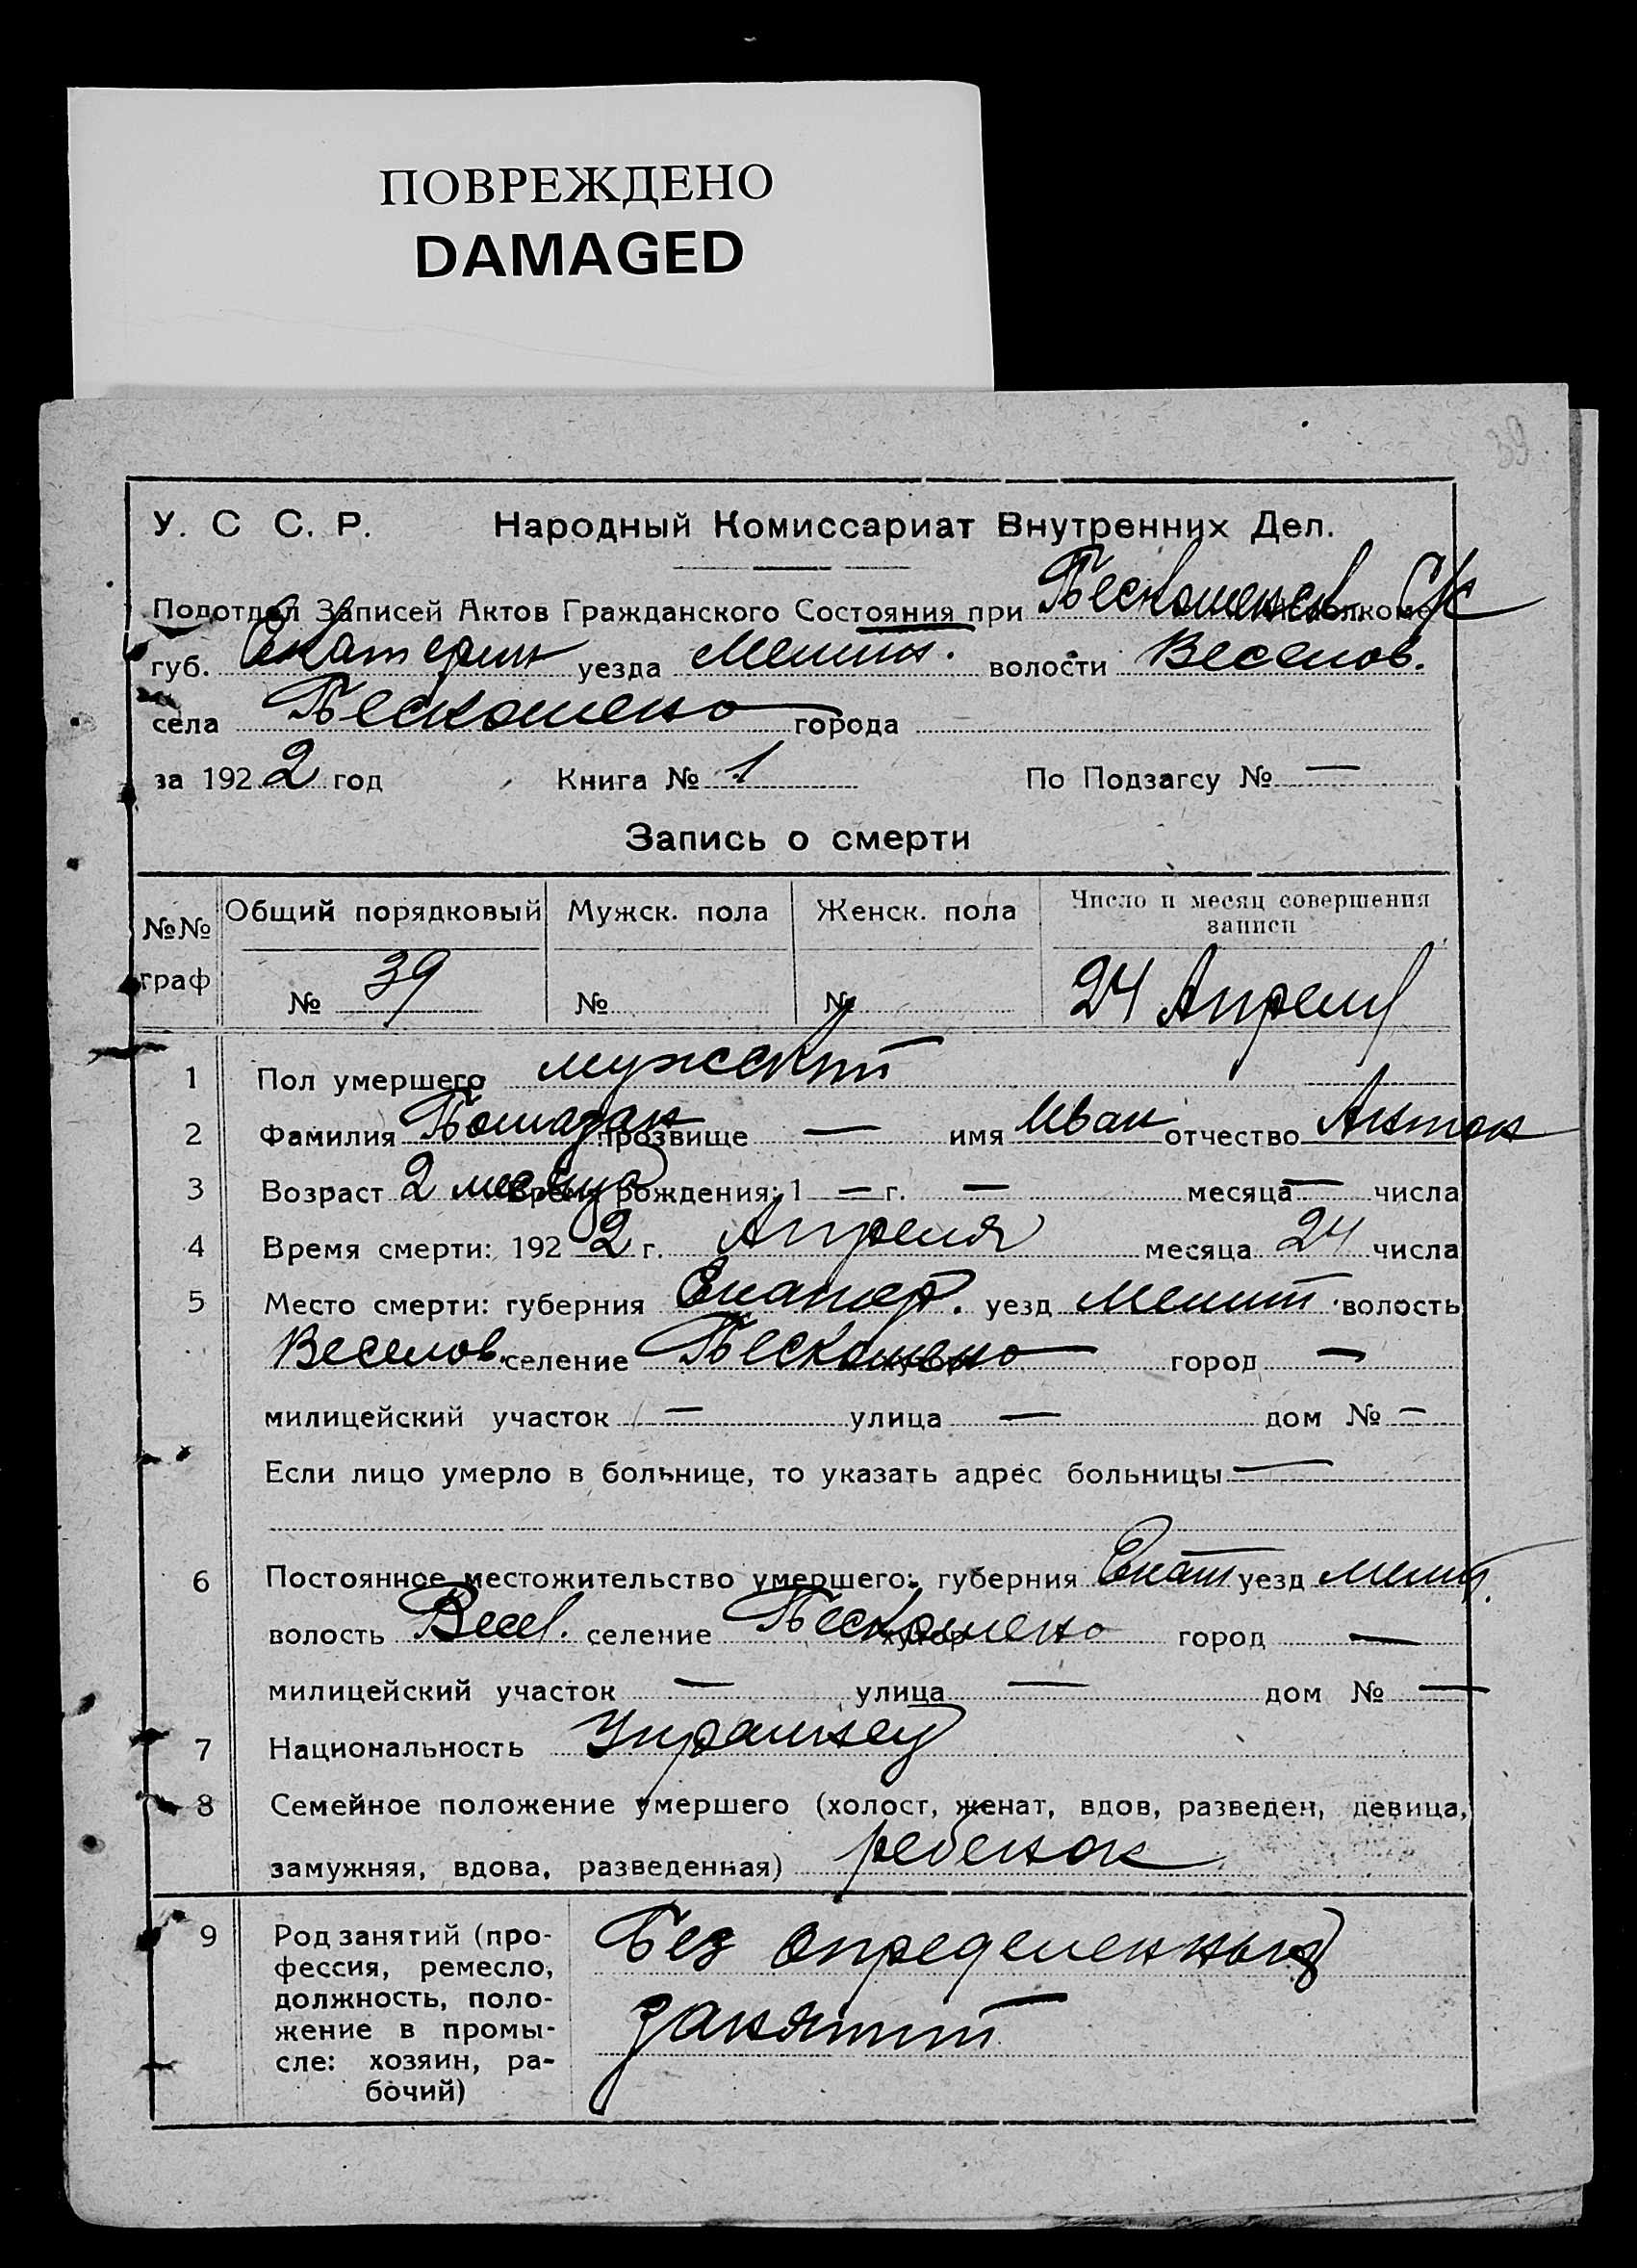 ПОВРЕЖДЕНО
DAMAGED
39
У. С С. Р. Народный Комиссариат Внутренних Дел.
Подотдел Записей Актов Гражданского Состояния при
губ. Екатерин уезда волости Веселов.
села города
за 1922 год Книга № 1 По Подзагсу № —
Запись о смерти
№№ граф Общий порядковый Мужск. пола Женск. пола Число и месяц совершения
записи
№ 39 № № 24 Апреля
1 Пол умершего мужский
2 Фамилия прозвище — имя Иван отчество Антон
3 Возраст 2 месяца Время рождения: 1 — г. — месяца — числа
4 Время смерти: 1922 г. Апреля месяца 24 числа
5 Место смерти: губерния Екатер. уезд Мелит. волость
Веселов. селение город —
милицейский участок — улица — дом № —
Если лицо умерло в больнице, то указать адрес больницы —
6 Постоянное местожительство умершего: губерния Екат уезд Мелит.
волость Весел. селение хутор город —
милицейский участок — улица — дом № —
7 Национальность Украинец
8 Семейное положение умершего (холост, женат, вдов, разведен, девица,
замужняя, вдова, разведенная) ребенок
9 Род занятий (про- Без определенных
фессия, ремесло,
должность, поло- занятий
жение в промы-
сле: хозяин, ра-
бочий)